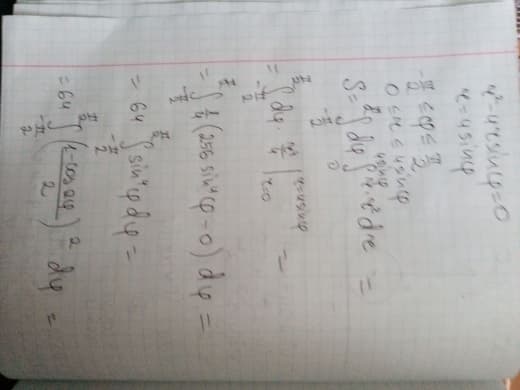 r² - 4r sinφ = 0
r = 4 sinφ
-π/2 ≤ φ ≤ π/2
0 ≤ r ≤ 4 sinφ
S = ∫_{-π/2}^{π/2} dφ ∫_0^{4sinφ} r · r² dr =
= ∫_{-π/2}^{π/2} dφ · r⁴/4 |_{r=0}^{r=4sinφ} =
= ∫_{-π/2}^{π/2} 1/4 (256 sin⁴φ - 0) dφ =
= 64 ∫_{-π/2}^{π/2} sin⁴φ dφ =
= 64 ∫_{-π/2}^{π/2} ((1-cos2φ)/2)² dφ =